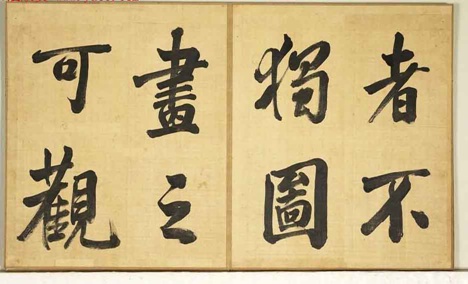 者不
獨圖
畫之
可觀